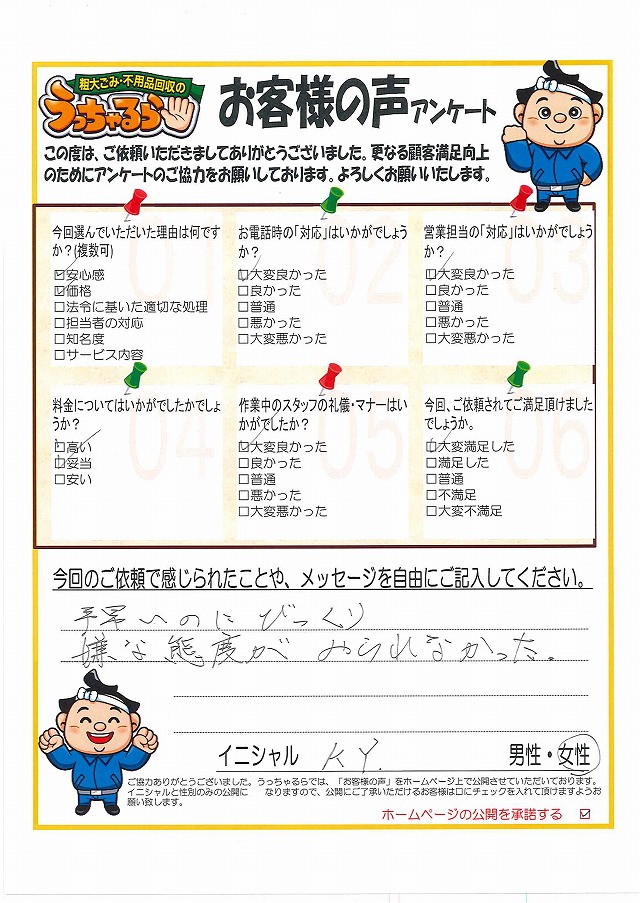 粗大ごみ・不用品回収の
うっちゃるら
お客様の声アンケート
この度は、ご依頼いただきましてありがとうございました。更なる顧客満足向上
のためにアンケートのご協力をお願いしております。よろしくお願いいたします。
01
今回選んでいただいた理由は何です
か?(複数可)
☑安心感
☑価格
□法令に基いた適切な処理
□担当者の対応
□知名度
□サービス内容
02
お電話時の「対応」はいかがでしょう
か?
☑大変良かった
□良かった
□普通
□悪かった
□大変悪かった
03
営業担当の「対応」はいかがでしょう
か?
☑大変良かった
□良かった
□普通
□悪かった
□大変悪かった
04
料金についてはいかがでしたかでしょ
うか?
☑高い
□妥当
□安い
05
作業中のスタッフの礼儀・マナーはい
かがでしたか?
☑大変良かった
□良かった
□普通
□悪かった
□大変悪かった
06
今回、ご依頼されてご満足頂けました
でしょうか。
☑大変満足した
□満足した
□普通
□不満足
□大変不満足
今回のご依頼で感じられたことや、メッセージを自由にご記入してください。
いのにびっくり
嫌な態度がみられなかった。
イニシャル K.Y. 男性・女性
ご協力ありがとうございました。うっちゃるらでは、「お客様の声」をホームページ上で公開させていただいております。
イニシャルと性別のみの公開に なりますので、公開にご了承いただけるお客様は口にチェックを入れて頂けますようお
願い致します。
ホームページの公開を承諾する ☑